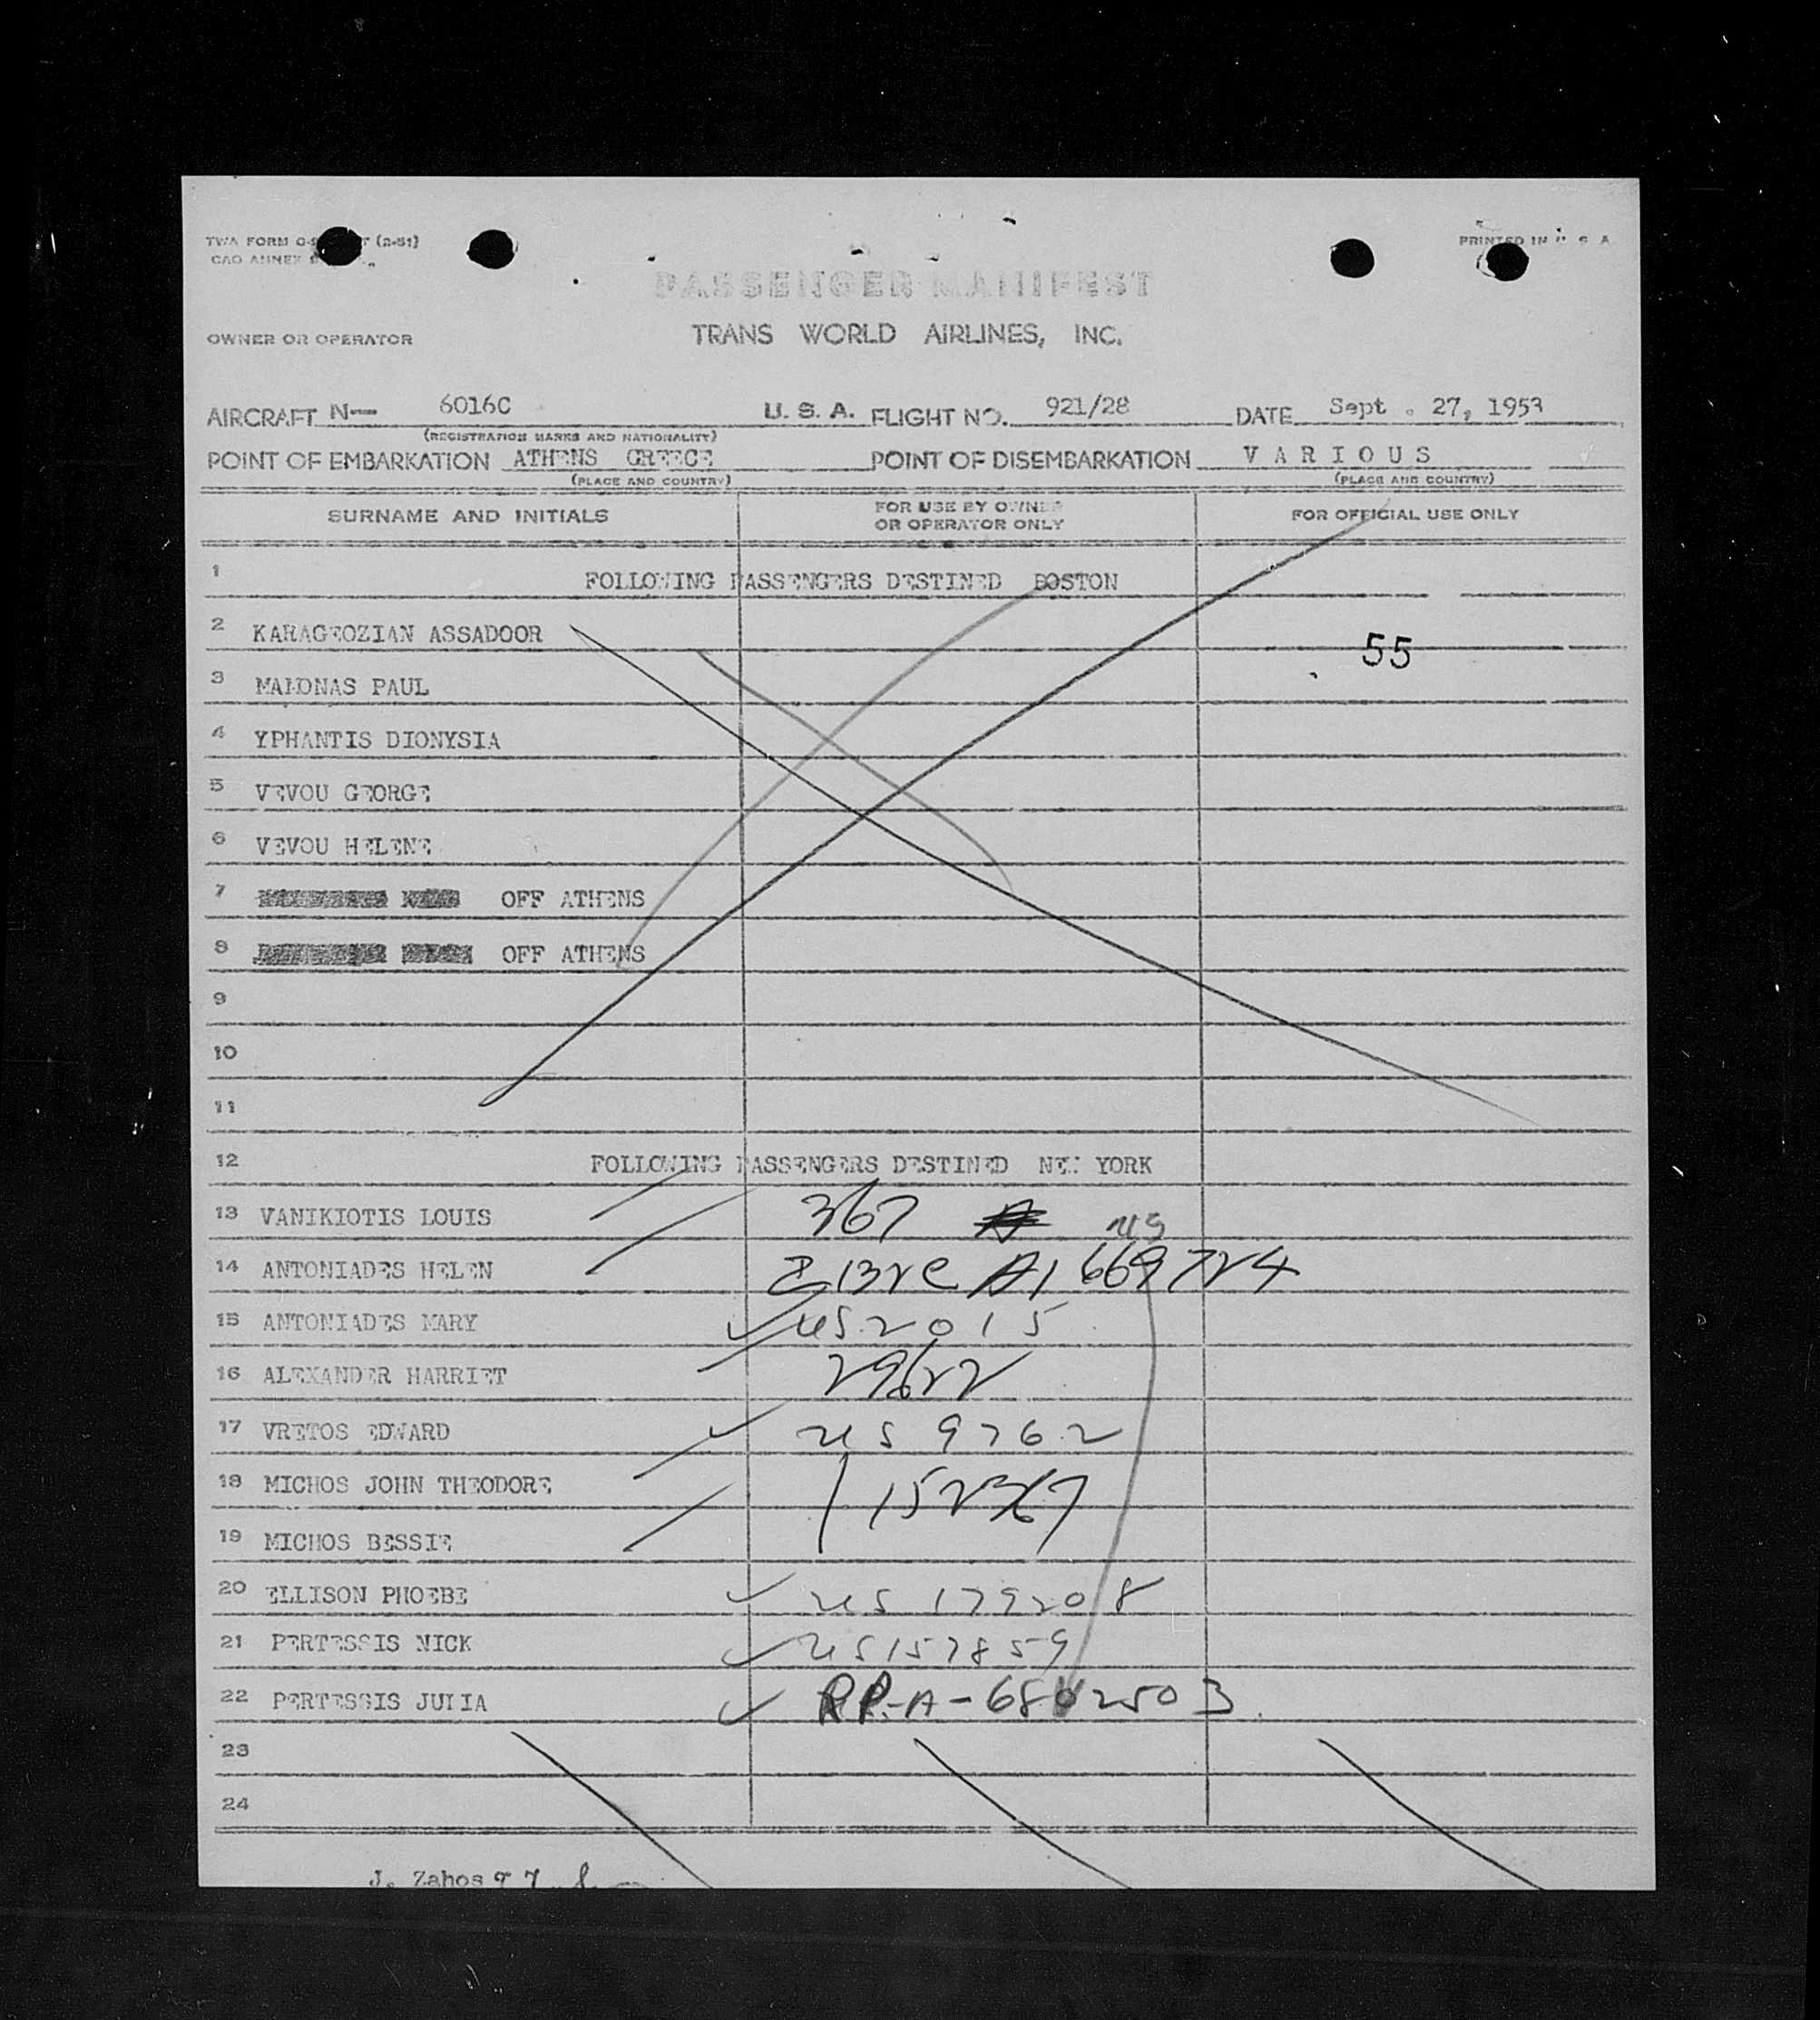 TWA FORM (2-51)
PRINTED IN U. S. A.
PASSENGER MANIFEST
OWNER OR OPERATOR TRANS WORLD AIRLINES, INC.
AIRCRAFT N— 6016C U. S. A. FLIGHT NO. 921/28 DATE Sept . 27, 1953
(REGISTRATION MARKS AND NATIONALITY)
POINT OF EMBARKATION ATHENS GREECE POINT OF DISEMBARKATION VARIOUS
(PLACE AND COUNTRY) (PLACE AND COUNTRY)
SURNAME AND INITIALS FOR USE BY OWNER OR OPERATOR ONLY FOR OFFICIAL USE ONLY
1 FOLLOWING PASSENGERS DESTINED BOSTON
2 KARAGEOZIAN ASSADOOR 55
3 PAUL
4 YPHANTIS DIONYSIA
5 VEVOU GEORGE
6 VEVOU HELENE
7 OFF ATHENS
8 OFF ATHENS
9
10
11
12 FOLLOWING PASSENGERS DESTINED NEW YORK
13 VANIKIOTIS LOUIS 367
14 ANTONIADES HELEN
15 ANTONIADES MARY US 2015
16 ALEXANDER HARRIET 29622
17 VRETOS EDWARD US 9762
18 MICHOS JOHN THEODORE 152367
19 MICHOS BESSIE
20 ELLISON PHOEBE US 179208
21 PERTESSIS NICK US 157859
22 PERTESSIS JULIA
23
24
J. Zahos